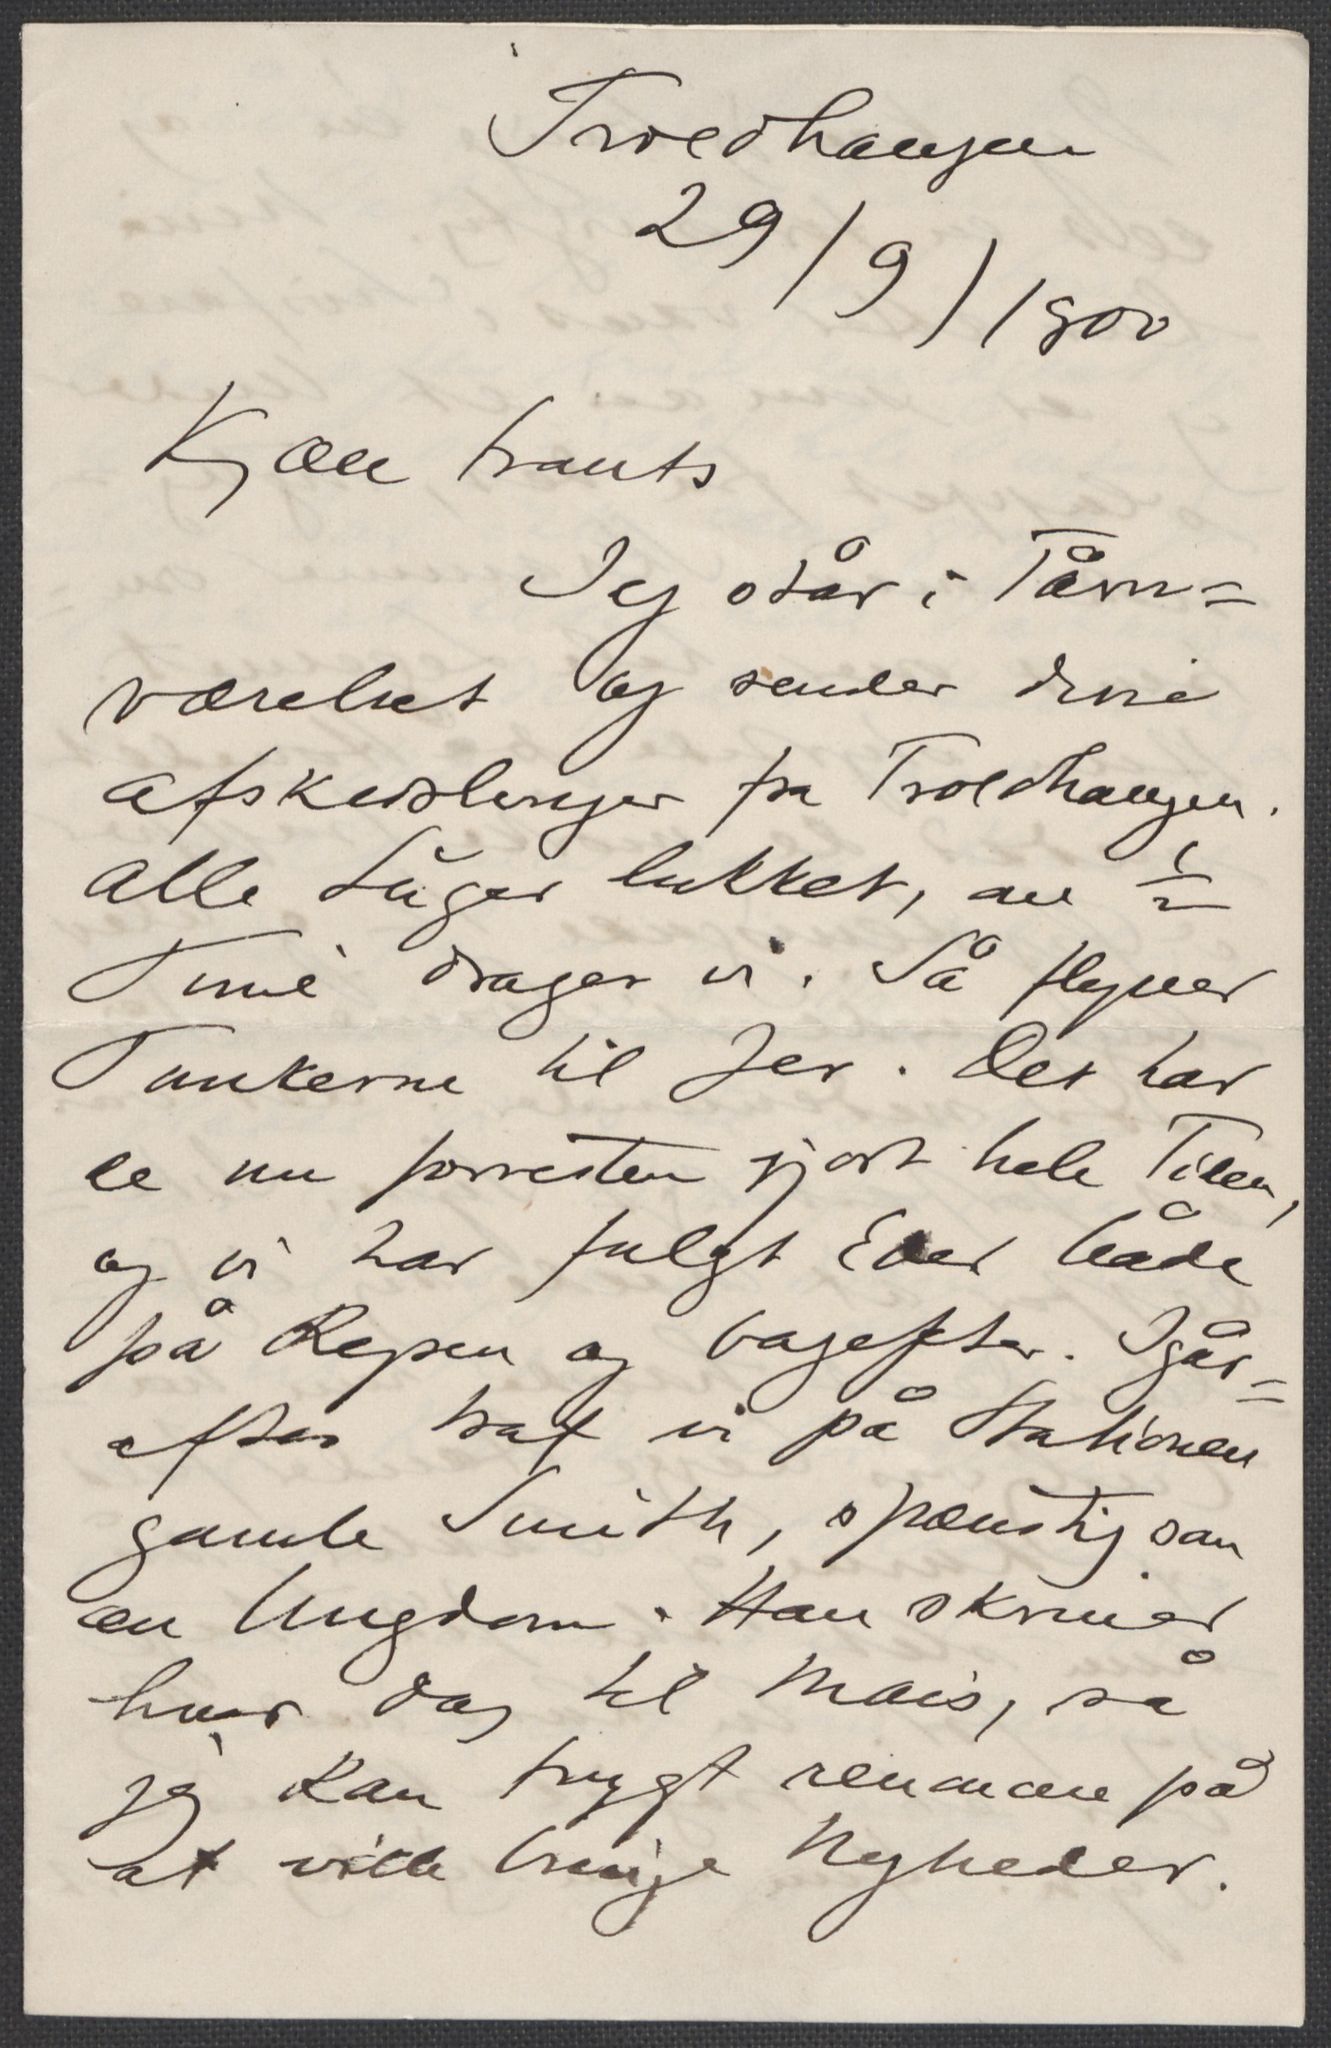 Troldhaugen
29/9/1900
Kjære Frants
Jeg står i Tårn=
værelset og sender disse
Afskedslinjer fra Troldhaugen.
Alle Luger lukket, om ½
Time drager vi. Så flyver
Tankerne til Jer. Det har
de nu forresten gjort hele Tiden,
og vi har fulgt Eder både
på Rejsen og bagefter. Igår=
aftes traf vi på Stationen
gamle Smith, spænstig som
en Ungdom. Han skriver
hver Dag til Mais, så
jeg kan trygt renoncere på
at ville bringe Nyheder.